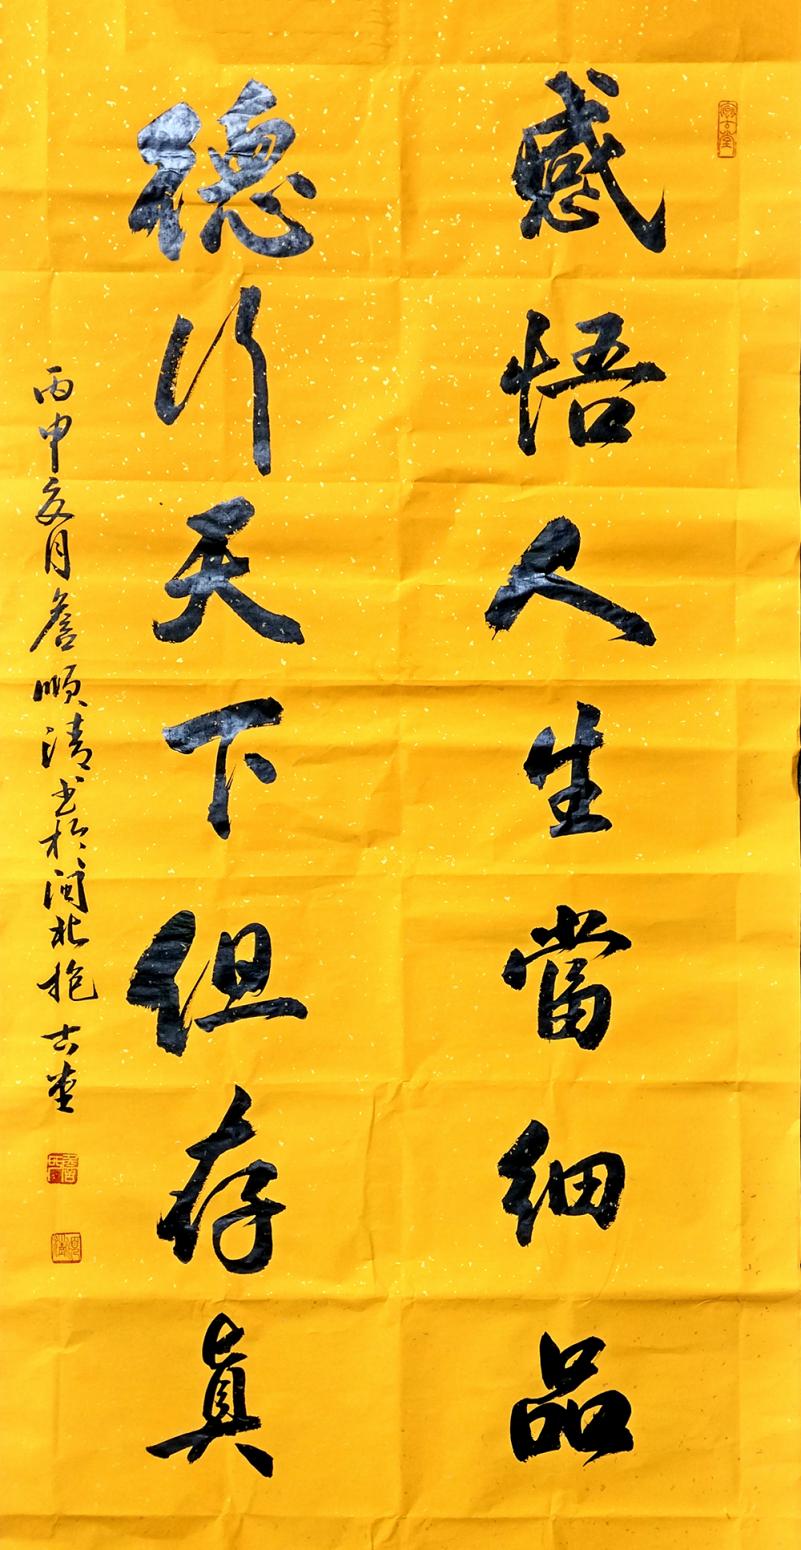 感悟人生當細品
德行天下但存真
丙申夏月詹順清书於閩北抱古堂